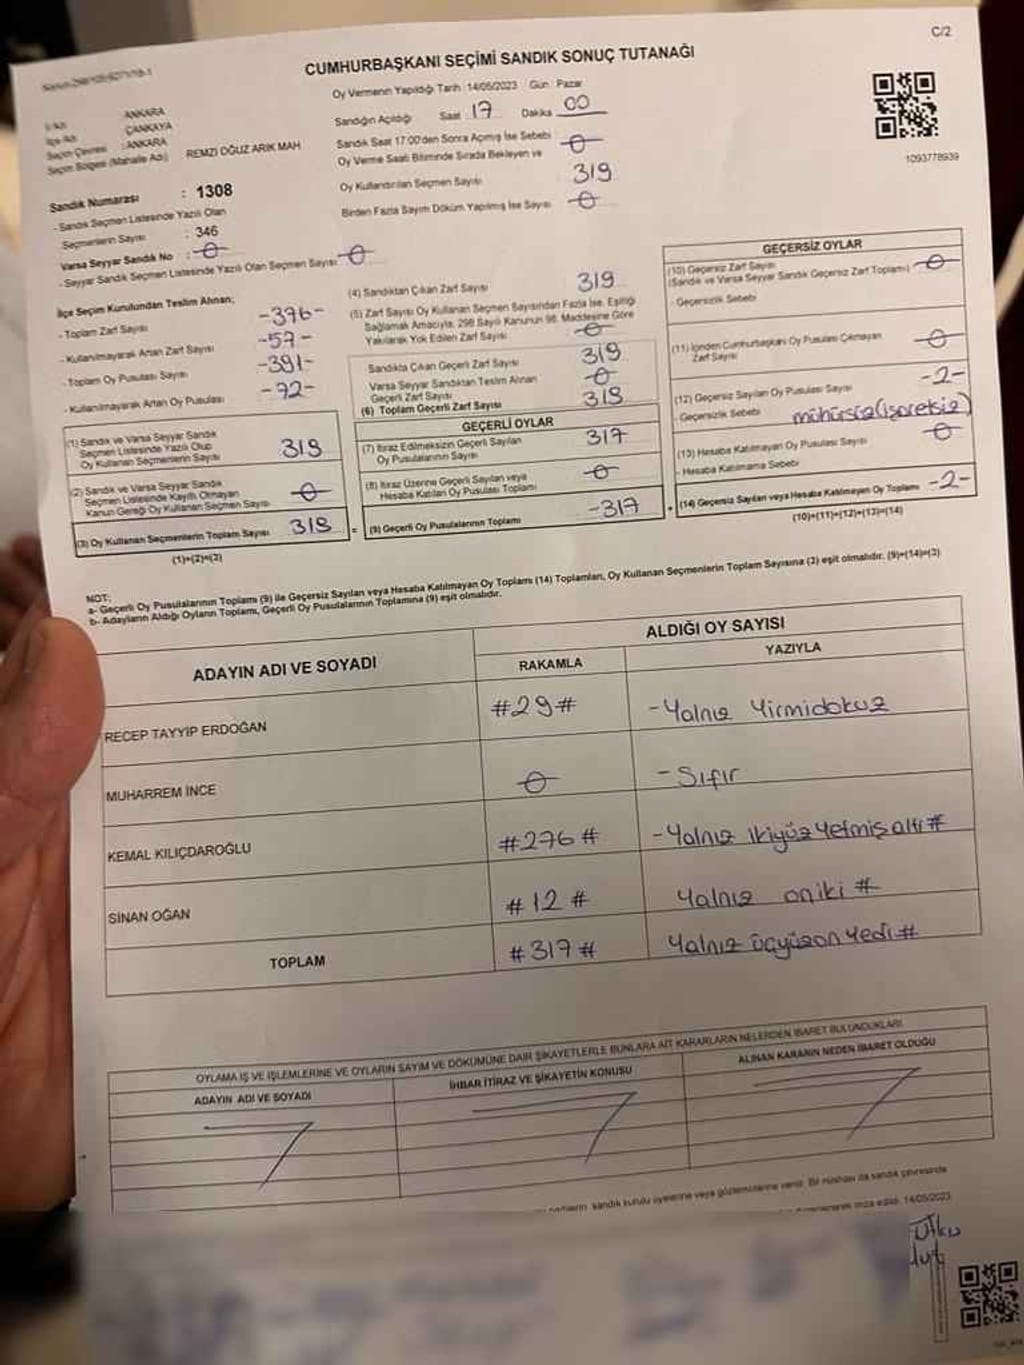 C/2
CUMHURBAŞKANI SEÇİMİ SANDIK SONUÇ TUTANAĞI
Oy Vermenin Yapıldığı Tarih :14/05/2023 Gün : Pazar
Sandığın Açıldığı Saat : 17 Dakika 00
Sandık Saat 17.00'den Sonra Açımış İse Sebebi 0
Oy Verme Saati Bitiminde Sırada Bekleyen ve
Oy Kullandırılan Seçmen Sayısı 319
Birden Fazla Sayım Döküm Yapılmış İse Sayısı 0
1093778939
İli Adı : ANKARA
İlçe Adı : ÇANKAYA
Seçim Çevresi : ANKARA
Seçim Bölgesi (Mahalle Adı) REMZİ OĞUZ ARIK MAH
Sandık Numarası : 1308
- Sandık Seçmen Listesinde Yazılı Olan
Seçmenlerin Sayısı : 346
Varsa Seyyar Sandık No : 0
- Seyyar Sandık Seçmen Listesinde Yazılı Olan Seçmen Sayısı : 0
İlçe Seçim Kurulundan Teslim Alınan;
- Toplam Zarf Sayısı -376-
- Kullanılmayarak Artan Zarf Sayısı -57-
- Toplam Oy Pusulası Sayısı -391-
- Kullanılmayarak Artan Oy Pusulası -72-
(1) Sandık ve Varsa Seyyar Sandık
Seçmen Listesinde Yazılı Olup
Oy Kullanan Seçmenlerin Sayısı 319
(2) Sandık ve Varsa Seyyar Sandık
Seçmen Listesinde Kayıtlı Olmayan
Kanun Gereği Oy Kullanan Seçmen Sayısı 0
(3) Oy Kullanan Seçmenlerin Toplam Sayısı 319
(1)+(2)=(3)
(4) Sandıktan Çıkan Zarf Sayısı 319
(5) Zarf Sayısı Oy Kullanan Seçmen Sayısından Fazla İse, Eşitliği
Sağlamak Amacıyla, 298 Sayılı Kanunun 98. Maddesine Göre
Yakılarak Yok Edilen Zarf Sayısı 0
Sandıkta Çıkan Geçerli Zarf Sayısı 319
Varsa Seyyar Sandıktan Teslim Alınan
Geçerli Zarf Sayısı 0
(6) Toplam Geçerli Zarf Sayısı 319
GEÇERLİ OYLAR
(7) İtiraz Edilmeksizin Geçerli Sayılan
Oy Pusulalarının Sayısı 317
(8) İtiraz Üzerine Geçerli Sayılan veya
Hesaba Katılan Oy Pusulası Toplamı 0
= (9) Geçerli Oy Pusulalarının Toplamı -317
GEÇERSİZ OYLAR
(10) Geçersiz Zarf Sayısı
(Sandık ve Varsa Seyyar Sandık Geçersiz Zarf Toplamı) 0
- Geçersizlik Sebebi
(11) İçinden Cumhurbaşkanı Oy Pusulası Çıkmayan
Zarf Sayısı 0
(12) Geçersiz Sayılan Oy Pusulası Sayısı -2-
- Geçersizlik Sebebi mühürsüz(işaretsiz)
(13) Hesaba Katılmayan Oy Pusulası Sayısı 0
- Hesaba Katılmama Sebebi
+ (14) Geçersiz Sayılan veya Hesaba Katılmayan Oy Toplamı -2-
(10)+(11)+(12)+(13)=(14)
NOT:
a- Geçerli Oy Pusulalarının Toplamı (9) ile Geçersiz Sayılan veya Hesaba Katılmayan Oy Toplamı (14) Toplamları, Oy Kullanan Seçmenlerin Toplam Sayısına (3) eşit olmalıdır. (9)+(14)=(3)
b- Adayların Aldığı Oyların Toplamı, Geçerli Oy Pusulalarının Toplamına (9) eşit olmalıdır.
ADAYIN ADI VE SOYADI
ALDIĞI OY SAYISI
RAKAMLA YAZIYLA
RECEP TAYYİP ERDOĞAN #29# -Yalnız Yirmidokuz
MUHARREM İNCE 0 - Sıfır
KEMAL KILIÇDAROĞLU #276# -Yalnız ikiyüz Yetmiş altı #
SİNAN OĞAN #12# Yalnız oniki #
TOPLAM #317# Yalnız üçyüzon Yedi #
OYLAMA İŞ VE İŞLEMLERİNE VE OYLARIN SAYIM VE DÖKÜMÜNE DAİR ŞİKAYETLERLE BUNLARA AİT KARARLARIN NELERDEN İBARET BULUNDUKLARI
ADAYIN ADI VE SOYADI İHBAR İTİRAZ VE ŞİKAYETİN KONUSU ALINAN KARARIN NEDEN İBARET OLDUĞU
sandık kurulu üyelerine veya gözlemcilerine verilir. Bir nüshası da sandık çevresinde
imza edildi. 14/05/2023
Utku